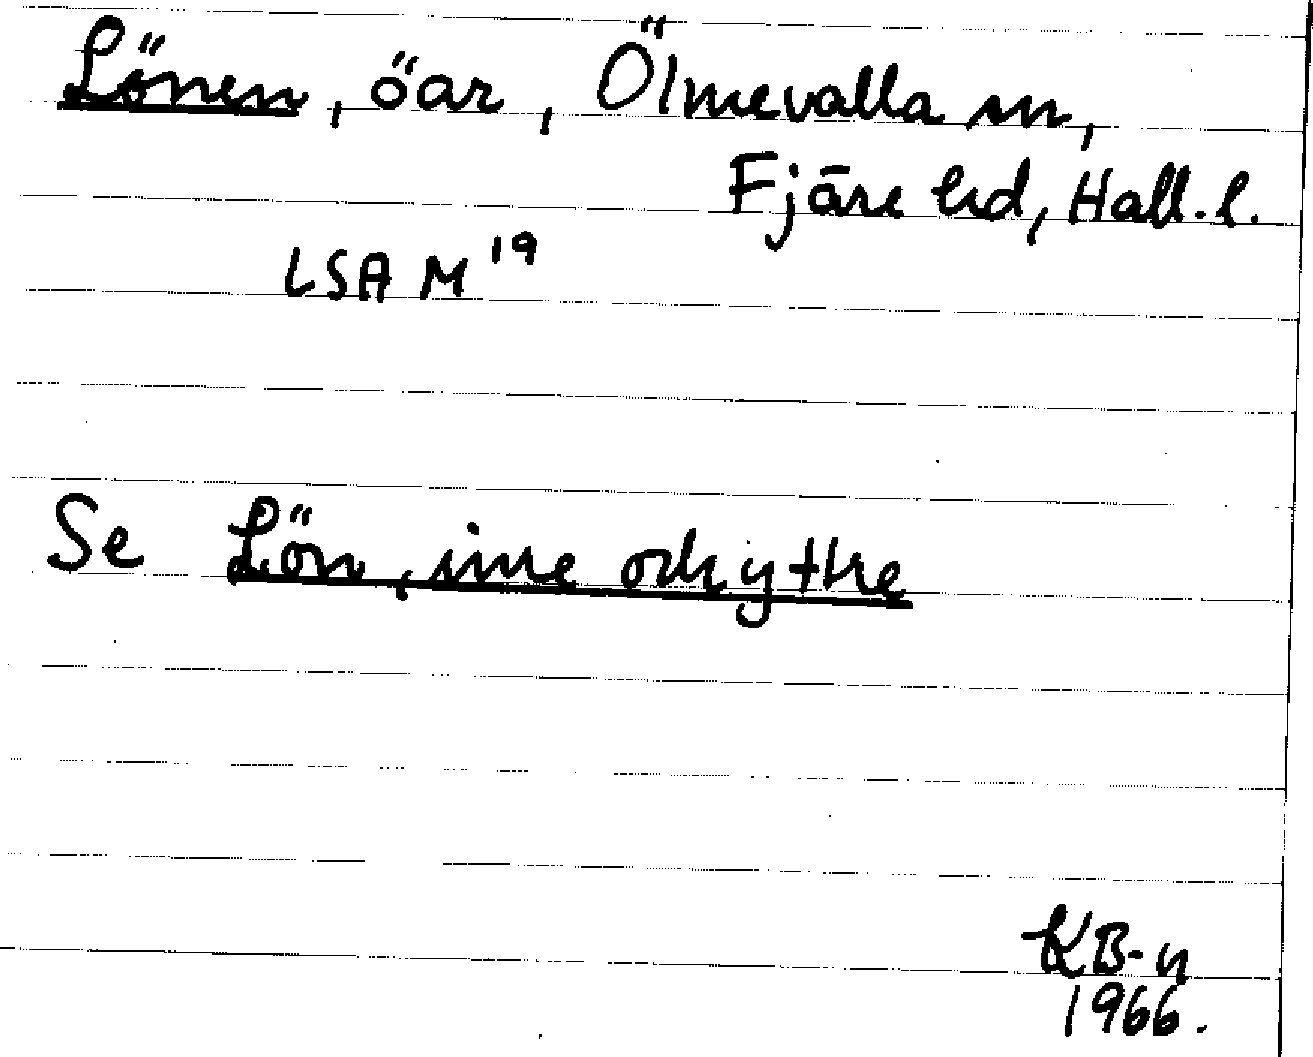 Lönen, öar, Ölmevalla sn,
Fjäre hd, Hall. l.
LSA M 19
Se Lön, inre och yttre
KB-n
1966.